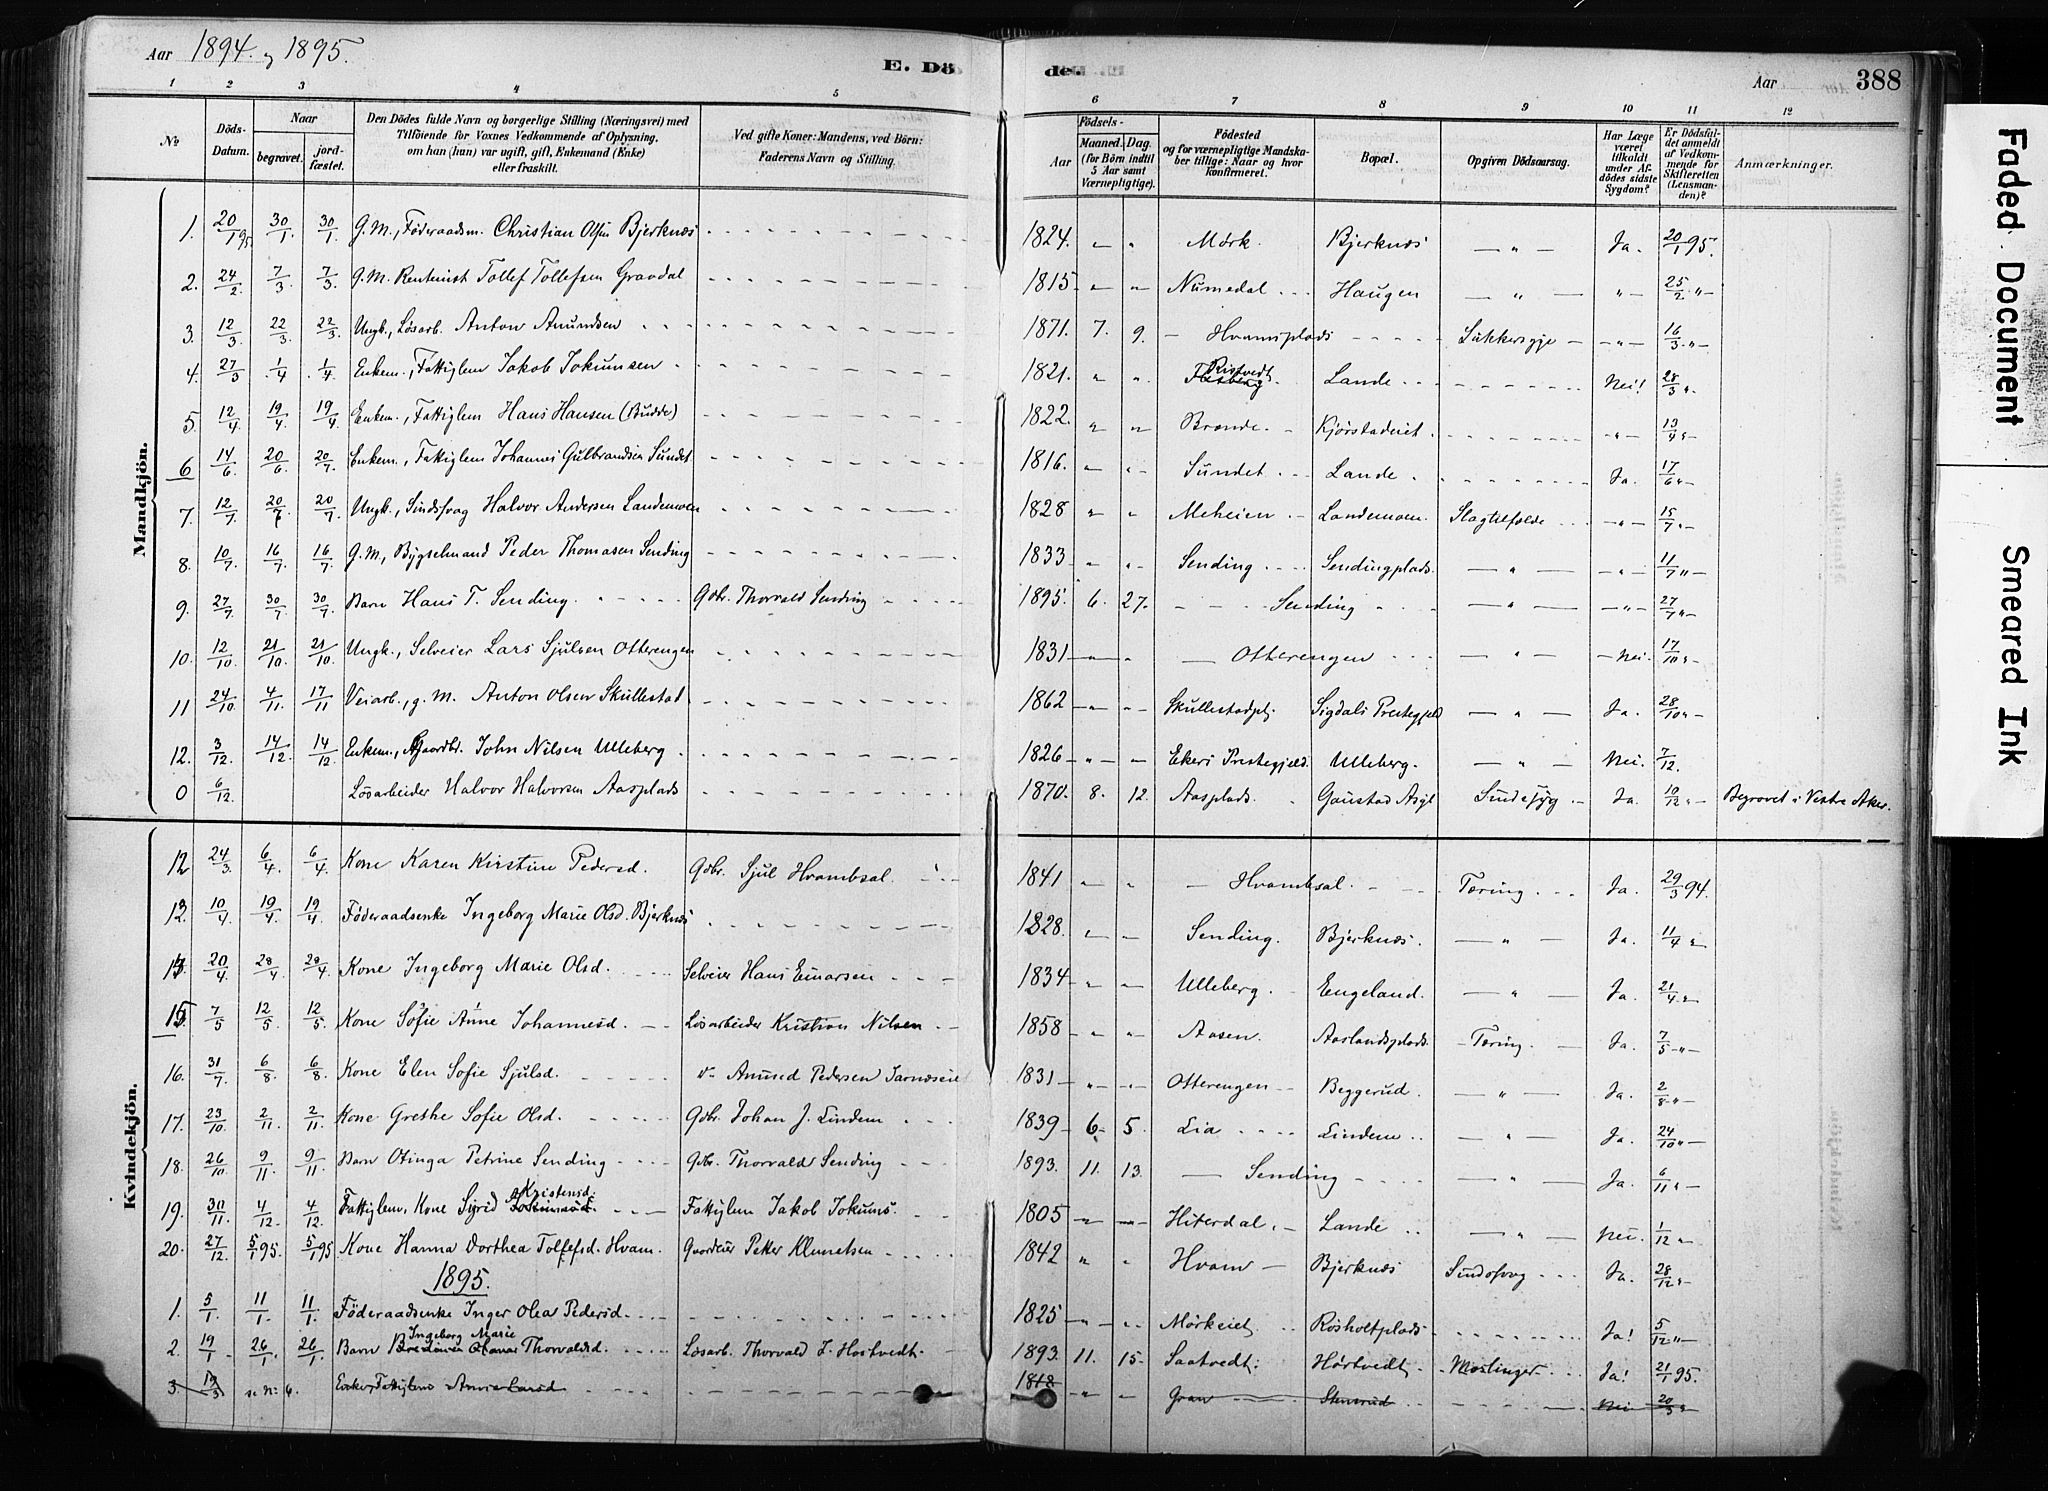 Aar 1894. og 1895.
E. Dö
de.
Aar 388
1 2 3 4 5 6 7 8 9 10 11 12
No
Döds-Datum.
Naar
begravet.
jord-fæstet.
Den Dödes fulde Navn og borgerlige Stilling (Næringsvei) med
Tilföiende for Voxnes Vedkommende af Oplysning,
om han (hun) var ugift, gift, Enkemand (Enke)
eller fraskilt.
Ved gifte Koner: Mandens, ved Börn:
Faderens Navn og Stilling.
Födsels-
Aar
Maaned. Dag.
(for Börn indtil
5 Aar samt
Værnepligtige).
Födested
og for værnepligtige Mandska-
ber tillige: Naar og hvor
konfirmeret.
Bopæl.
Opgiven Dödsaarsag.
Har Læge
været
tilkaldt
under Af-
dödes sidste
Sygdom?
Er Dödsfal-
det anmeldt
af Vedkom-
mende for
Skifteretten
(Lensman-
den)?
Anmærkninger.
Mandkjön.
1. 20/1 95 30/1. 30/1. G.M., Föderaadsm. Christian Olsen Bjerknæs 1824. " " Mørk. Bjerknæs — " — Ja. 20/1 95.
2. 24/2 7/3 7/3 G.M. Rentenist Tollef Tollefsen Gravdal 1815 " " Numedal Haugen — " — " 25/2 "
3. 12/3 22/3 22/3 Ungk., Løsarb. Anton Amundsen 1871. 7. 9. — Hvamsplads Sukkersyge — " — 16/3 "
4. 27/3 1/4 1/4 Enkem., Fattiglem Jakob Jokumsen 1821. " " Ristvedt Lande Nei! 28/3 "
5. 12/4 19/4 19/4 Enkem., Fattiglem Hans Hansen (Budde) 1822. " " Brende Kjørstadeiet " 13/4 "
6 14/6 20/6. 20/7. Enkem., Fattiglem Johannes Gulbrandsen Sundet 1816. " " Sundet Lande Ja. 17/6 "
7. 12/7. 20/7 20/7 Ungk., Sindssvag Halvor Andersen Landemoen 1828 " " Meheien Landemoen. Slagtilfælde — " — 15/7 "
8. 10/7. 16/7 16/7. G.M., Bygselmand Peder Thomasen Sending 1833 " " Sending Sendingplads — " — " 11/7 "
9. 27/7. 30/7 30/7. Barn Hans T. Sending. Gdbr. Thorvald Sending 1895. 6. 27. Sending — " — " 27/7 "
10. 12/10 21/10. 21/10. Ungk., Selveier Lars Sjulsen Otterengen 1831 " " — Otterengen — " — Nei. 17/10 "
11 24/10. 4/11. 17/11 Veiarb., g.M. Anton Olsen Skullestad 1862 " " Skullestadplj. Sigdals Prestegjeld — " — Ja. 28/10 "
12. 3/12. 14/12 14/12 Enkem., Gaardbr. John Nilsen Ulleberg 1826 " " Ekers Prestegjeld. Ulleberg. — " — Nei. 7/12.
0 6/12. Løsarbeider Halvor Halvorsen Aasplads 1870. 8. 12. Aasplads. Gaustad Asyl Sindssyg Ja. 10/12 " Begravet i Vestre Aker.
Kvindekjön.
12 24/3 6/4. 6/4 Kone Karen Kirstine Pedersd. Gdbr. Sjul Hvambsal. 1841 " " — Hvambsal. Tæring Ja. 29/3 94.
13. 10/4 19/4 19/4 Föderaadsenke Ingeborg Marie Olsd. Bjerknæs 1828. " " Sending. Bjerknæs. — " — Ja. 11/4 "
20/4 28/4 28/4. Kone Ingeborg Marie Olsd. Selveier Hans Einarsen 1834 " " Ulleberg. Engeland. — " — Ja. 21/4 "
15. 7/5 12/5 12/5. Kone Sofie Anne Johannesd. Løsarbeider Kristian Nilsen 1858 " " Aasen. Aaslandsplads. Tæring. Ja. 7/5 "
16. 31/7 6/8 6/8. Kone Elen Sofie Sjulsd. Do Amund Pedersen 1831 " " Otterengen Beggerud. — " — Ja. 2/8 "
17. 23/10. 2/11. 2/11. Kone Grethe Sofie Olsd. Gdbr. Johan J. Lindem 1839 6 5. Lia Lindem — " — Ja. 24/10 "
18. 26/10. 9/11. 9/11. Barn Otinga Petrine Sending Gdbr. Thorvald Sending 1893. 11. 13. — Sending Ja. 6/11 "
19. 30/11. 4/12. 4/12. Fattiglem, Kone Sigrid Kristensd. Fattiglem Jakob Jokums. 1805 " " Hiterdal. Lande — " — Nei. 1/12 "
20. 27/12. 5/1 95. 5/1 95 Kone Hanna Dorthea Tollefsd. Hvam. Gaardeier Petter Klemetsen 1842 " " Hvam Bjerknæs Sindssvag Ja. 28/12 "
1895.
1. 5/1 11/1. 11/1. Föderaadsenke Inger Olea Pedersd. 1825 " " Mørkeiet Røsholtplads Ja! 5/12 "
2. 19/1 26/1. 26/1 Barn Ingeborg Marie Thorvaldsd. Løsarb. Thorvald J. Hostvedt 1893. 11. 15. Saatvedt. Hørtvedt Mæslinger Ja! 21/1 95.
3. 19/3 se No 6. Enke, Fattiglem Anne Larsd 1818 " " Gran Stensrud Nei 20/3 "
Faded Document
Smeared Ink